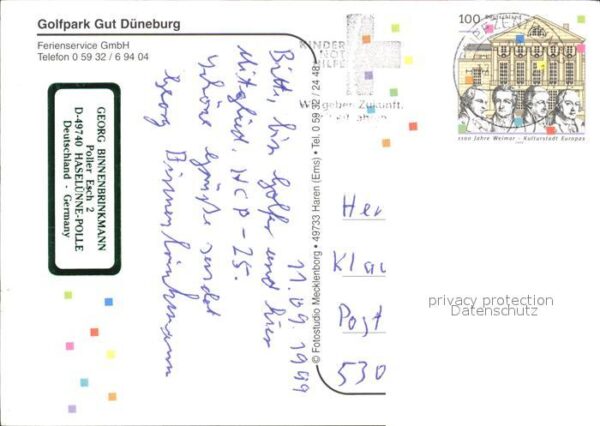 Golfpark Gut Düneburg
Ferienservice GmbH
Telefon 0 59 32 / 6 94 04
GEORG BINNENBRINKMANN
Poller Esch 2
D-49740 HASELÜNNE-POLLE
Deutschland - Germany
11.09.1999
Bitte, bin Golfer und hier
Mitglied. HCP-25.
Schöne Grüße sendet
Georg Binnenbrinkmann
© Fotostudio Mecklenborg • 49733 Haren (Ems) • Tel. 0 59 32 / 24 48
KINDER
NOT
HILFE
Wir geben Zukunft.
100 Deutschland
1100 Jahre Weimar - Kulturstadt Europas
Her
Klau
Post
530
privacy protection
Datenschutz